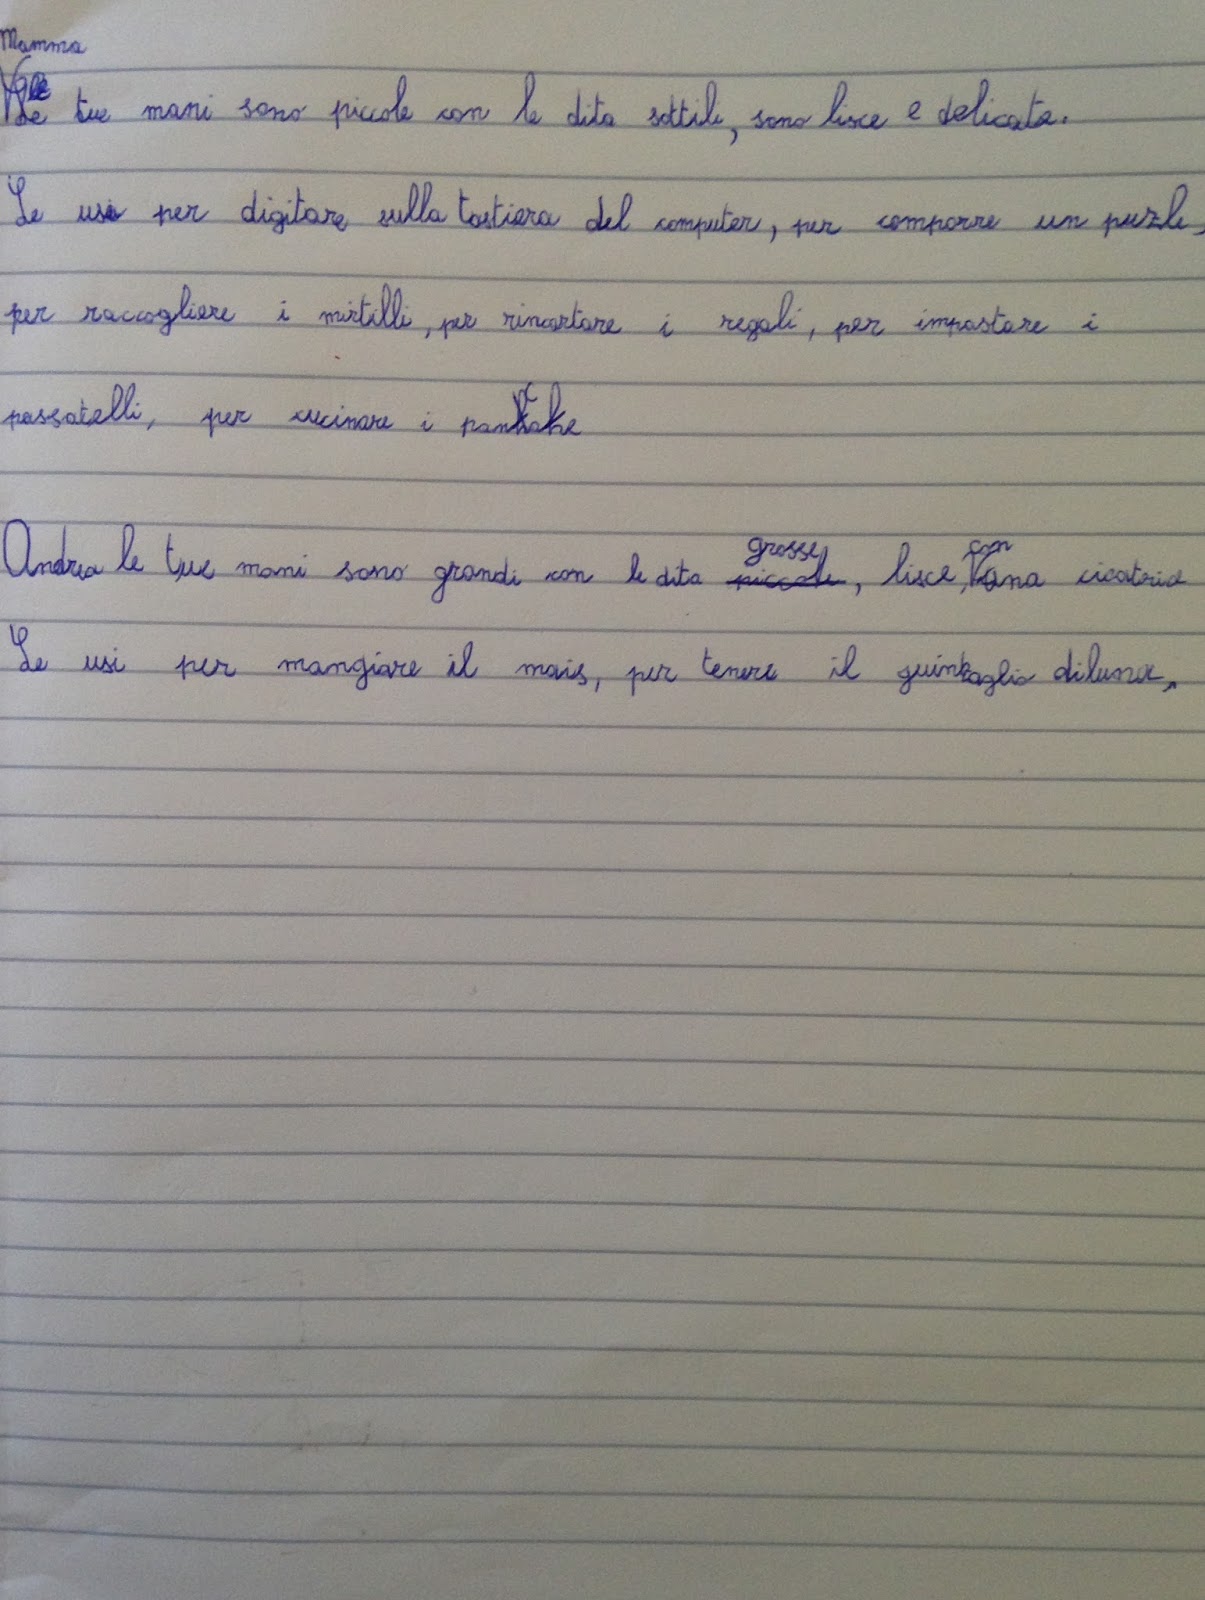 Mamma
Le tue mani sono piccole con le dita sottili, sono lisce e delicate.
Le usi per digitare sulla tastiera del computer, per comporre un puzzle,
per raccogliere i mirtilli, per rincartare i regali, per impastare i
passatelli, per cucinare i pancake
grosse con
Andrea le tue mani sono grandi con le dita piccole, lisce, una cicatrice
Le usi per mangiare il mais, per tenere il guinzaglio di luna,